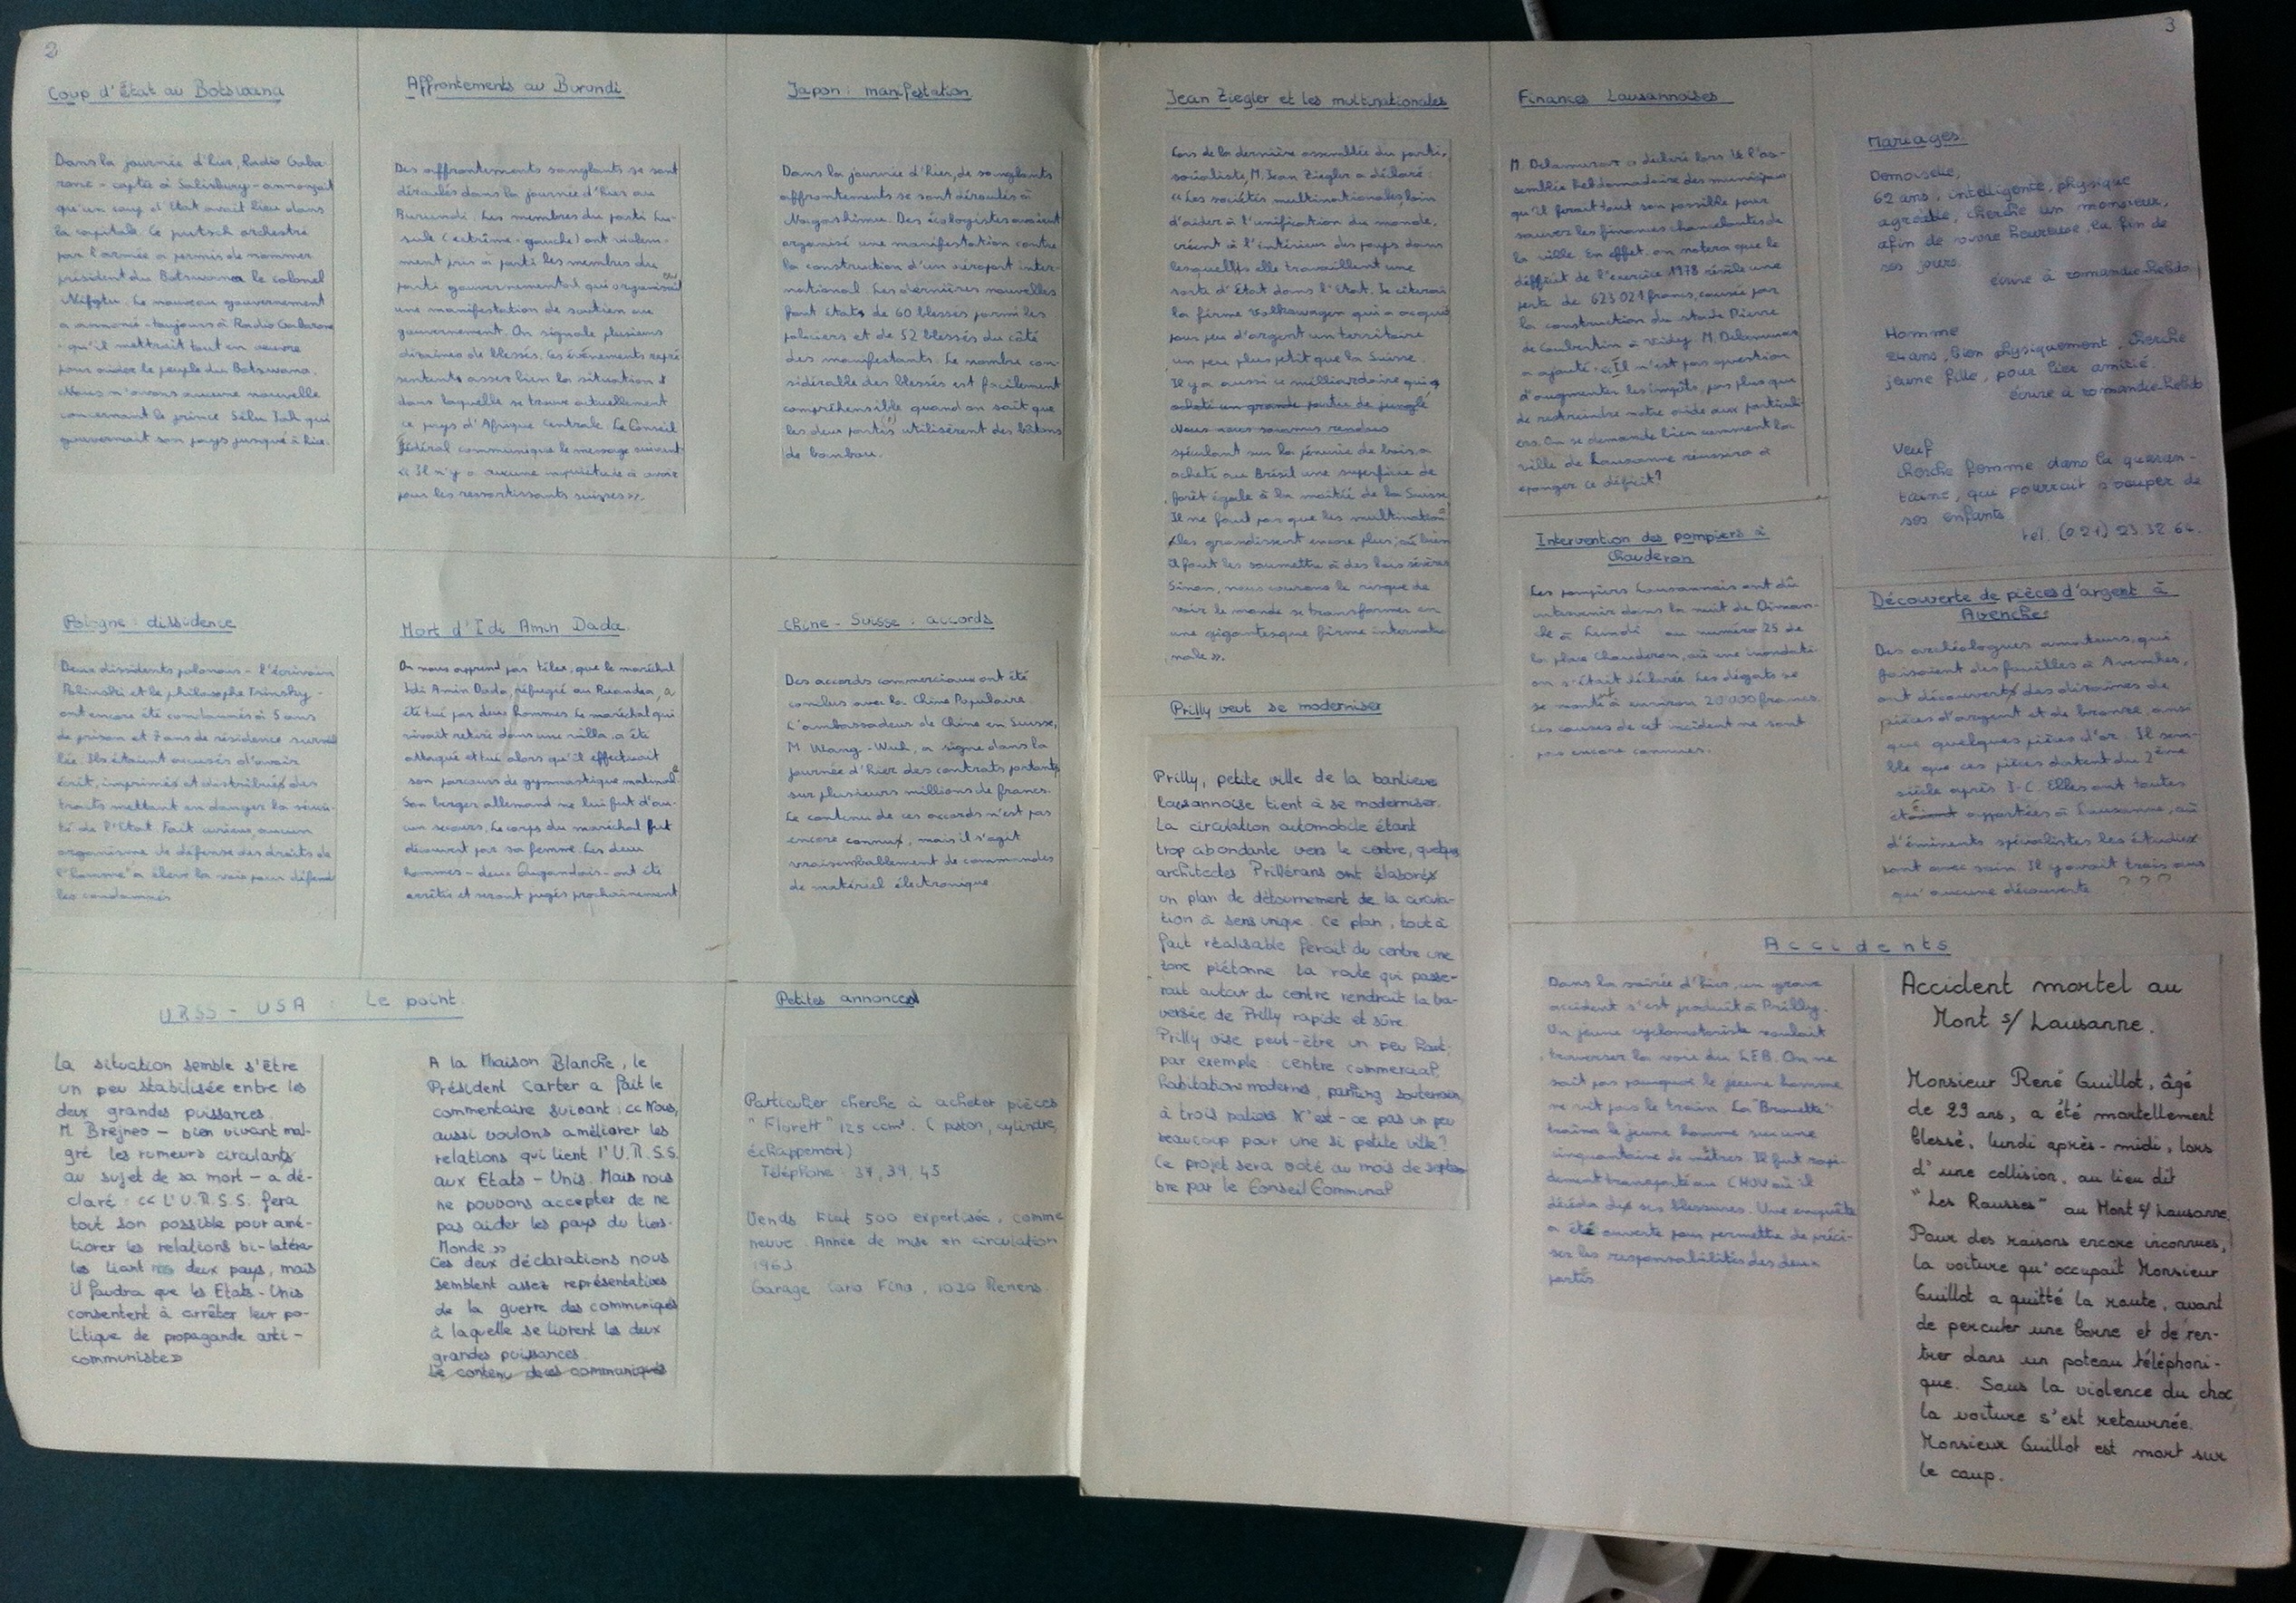 2
Coup d'État au Botswana
Dans la journée d'hier, Radio Gabe-
rone - captée à Salisbury - annonçait
qu'un coup d'Etat avait lieu dans
la capitale. Ce putsch orchestré
par l'armée a permis de nommer
président du Botswana le colonel
Le nouveau gouvernement
a annoncé - toujours à Radio Gaberone
- qu'il mettrait tout en oeuvre
pour aider le peuple du Botswana.
Nous n'avons aucune nouvelle
concernant le prince Sélu Iah qui
gouvernait son pays jusqu'à hier.
Affrontements au Burundi
Des affrontements sanglants se sont
déroulés dans la journée d'hier au
Burundi. Les membres du parti Lu-
sule (extrême-gauche) ont violem-
ment pris à parti les membres du
parti gouvernemental qui organisait
une manifestation de soutien au
gouvernement. On signale plusieurs
dizaines de blessés. Ces événements repré
sentent assez bien la situation
dans laquelle se trouve actuellement
ce pays d'Afrique Centrale. Le Conseil
fédéral communique le message suivant:
« Il n'y a aucune inquiétude à avoir
pour les ressortissants suisses».
Japon : manifestation
Dans la journée d'hier, de sanglants
affrontements se sont déroulés à
Nagashimu. Des écologistes avaient
organisé une manifestation contre
la construction d'un aéroport inter-
national. Les dernières nouvelles
font état de 60 blessés parmi les
policiers et de 52 blessés du côté
des manifestants. Le nombre con-
sidérable des blessés est facilement
compréhensible quand on sait que
les deux partis utilisèrent des bâtons
de bambou.
Pologne : dissidence
Deux dissidents polonais - l'écrivain
Polinski et le philosophe Irinsky -
ont encore été condamnés à 5 ans
de prison et 7 ans de résidence surveil
lée. Ils étaient accusés d'avoir
écrit, imprimés et distribués des
tracts mettant en danger la sécuri-
té de l'Etat. Fait curieux, aucun
organisme de défense des droits de
l'homme a élevé la voix pour défendre
les condamnés
Mort d'Idi Amin Dada.
On nous apprend par télex, que le maréchal
Idi Amin Dada, réfugié au Ruandea, a
été tué par deux hommes. Le maréchal qui
vivait retiré dans une villa, a été
attaqué et tué alors qu'il effectuait
son parcours de gymnastique matinale
Son berger allemand ne lui fut d'au-
cun secours. Le corps du maréchal fut
découvert par sa femme. Les deux
hommes - deux Ougandais - ont été
arrêtés et seront jugés prochainement
Chine - Suisse : accords
Des accords commerciaux ont été
conclus avec la Chine Populaire.
L'ambassadeur de Chine en Suisse,
M. Wang-Wuh, a signé dans la
journée d'hier des contrats portants
sur plusieurs millions de francs.
Le contenu de ces accords n'est pas
encore connu, mais il s'agit
vraisemblablement de commandes
de matériel électronique
URSS - USA : Le point.
La situation semble s'être
un peu stabilisée entre les
deux grandes puissances.
M. Brejnev - bien vivant mal-
gré les rumeurs circulants
au sujet de sa mort - a dé-
claré : « L'U.R.S.S. fera
tout son possible pour amé-
liorer les relations bi-latéra-
les liant nos deux pays, mais
il faudra que les Etats-Unis
consentent à arrêter leur po-
litique de propagande anti-
communiste»
A la Maison Blanche, le
Président Carter a fait le
commentaire suivant : « Nous,
aussi voulons améliorer les
relations qui lient l'U.R.S.S.
aux Etats-Unis. Mais nous
ne pouvons accepter de ne
pas aider les pays du tiers-
Monde »
Ces deux déclarations nous
semblent assez représentatives
de la guerre des communiqués
à laquelle se livrent les deux
grandes puissances.
Le contenu de ces communiqués
Petites annonces
Particulier cherche à acheter pièces
"Florett" 125 ccm³. (piston, cylindre,
échappement)
Téléphone : 37,39,45
Vends Fiat 500 expertisée, comme
neuve. Année de mise en circulation
1963.
Garage Carlo Fina, 1020 Renens
3
Jean Ziegler et les multinationales
Lors de la dernière assemblée du parti,
socialiste, M. Jean Ziegler a déclaré :
« Les sociétés multinationales, loin
d'aider à l'unification du monde,
créent à l'intérieur des pays dans
lesquels elle travaillent une
sorte d'Etat dans l'Etat. Je citerai
la firme Volkswagen qui a acquis
pour peu d'argent un territoire
un peu plus petit que la Suisse.
Il y a aussi ce milliardaire qui
acheté un grande partie de jungle
Nous nous sommes rendus
spéculant sur la pénurie de bois, a
acheté au Brésil une superficie de
forêt égale à la moitié de la Suisse
Il ne faut pas que les multinationa
les grandissent encore plus; ou bien
il faut les soumettre à des lois sévères
Sinon, nous courons le risque de
voir le monde se transformer en
une gigantesque firme internatio
nale ».
Prilly veut se moderniser
Prilly, petite ville de la banlieue
lausannoise tient à se moderniser.
La circulation automobile étant
trop abondante vers le centre, quelques
architectes Prillérans ont élaboré
un plan de détournement de la circula-
tion à sens unique. Ce plan, tout à
fait réalisable ferait du centre une
zone piétonne. La route qui passe-
rait autour du centre rendrait la tra-
versée de Prilly rapide et sûre
Prilly vise peut-être un peu haut;
par exemple : centre commercial,
habitations modernes, parking souterrain,
à trois paliers. N'est-ce pas un peu
beaucoup pour une si petite ville?
Ce projet sera voté au mois de septem
bre par le Conseil Communal
Finances Lausannoises
M. Delamuraz a déclaré lors de l'as-
semblée hebdomadaire des municipaux
qu'il ferait tout son possible pour
sauver les finances chancelantes de
la ville. En effet, on notera que le
déficit de l'exercice 1978 révèle une
perte de 623 021 francs, causée par
la construction du stade Pierre
de Coubertin à Vidy. M. Delamuraz
a ajouté: «Il n'est pas question
d'augmenter les impôts, pas plus que
de restreindre notre aide aux particuli-
ers. On se demande bien comment la
ville de Lausanne réussira à
éponger ce déficit?
Intervention des pompiers à
Chauderon
Les pompiers Lausannois ont dû
intervenir dans la nuit de Diman-
che à Lundi au numéro 25 de
la place Chauderon, où une inondati-
on s'était déclarée. Les dégâts se
se monte à environ 20'000 francs.
Les causes de cet incident ne sont
pas encore connues.
Mariages
Demoiselle,
62 ans, intelligente, physique
agréable, cherche un monsieur,
afin de vivre heureuse la fin de
ses jours.
écrire à romandie-hebdo
Homme
24 ans, bien physiquement, cherche
jeune fille, pour lier amitié.
écrire à romandie-hebdo
Veuf
cherche femme dans la quaran-
taine, qui pourrait s'ocuper de
ses enfants.
tél. (021) 23.32.64.
Découverte de pièces d'argent à
Avenches
Des archéologues amateurs, qui
faisaient des fouilles à Avenches,
ont découverts des dizaines de
pièces d'argent et de bronze, ainsi
que quelques pièces d'or. Il sem-
ble que ces pièces datent du 2ème
siècle après J-C. Elles ont toutes
été apportées à Lausanne, où
d'éminents spécialistes les étudie
ront avec soin. Il y avait trois ans
qu'aucune découverte ???
Accidents
Dans la soirée d'hier, un grave
accident s'est produit à Prilly.
Un jeune cyclomotoriste voulait
traverser la voie du LEB. On ne
sait pas pourquoi le jeune homme
ne vit pas le train. La "Brouette"
traîna le jeune homme sur une
cinquantaine de mètres. Il fut rapi-
dement transporté au CHUV où il
décéda de ses blessures. Une enquête
a été ouverte pour permettre de préci-
ser les responsabilités des deux
partis.
Accident mortel au
Mont s/ Lausanne.
Monsieur René Guillot, âgé
de 29 ans, a été mortellement
blessé, lundi après-midi, lors
d'une collision, au lieu dit
"Les Rausses" au Mont s/ Lausanne.
Pour des raisons encore inconnues,
la voiture qu'occupait Monsieur
Guillot a quitté la route, avant
de percuter une borne et de ren-
trer dans un poteau téléphoni-
que. Sous la violence du choc,
la voiture s'est retournée.
Monsieur Guillot est mort sur
le coup.